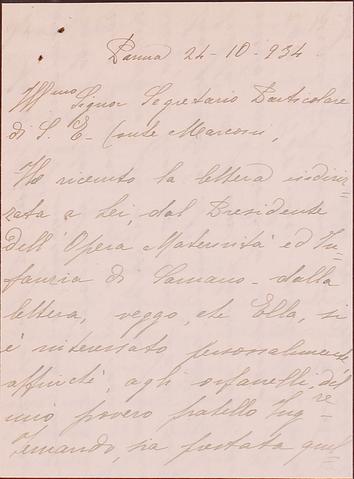 Parma 24-10-934
Ill.mo Signor Segretario Particolare
di S. E. Conte Marconi,
Ho ricevuto la lettera indiriz
zata a Lei, dal Presidente
dell'Opera Maternità ed In
fanzia di - dalla
lettera, veggo, che Ella, si
è interessato personalmente
affinché, agli orfanelli, del
mio povero fratello Ing.re
Fernando, sia portata quel